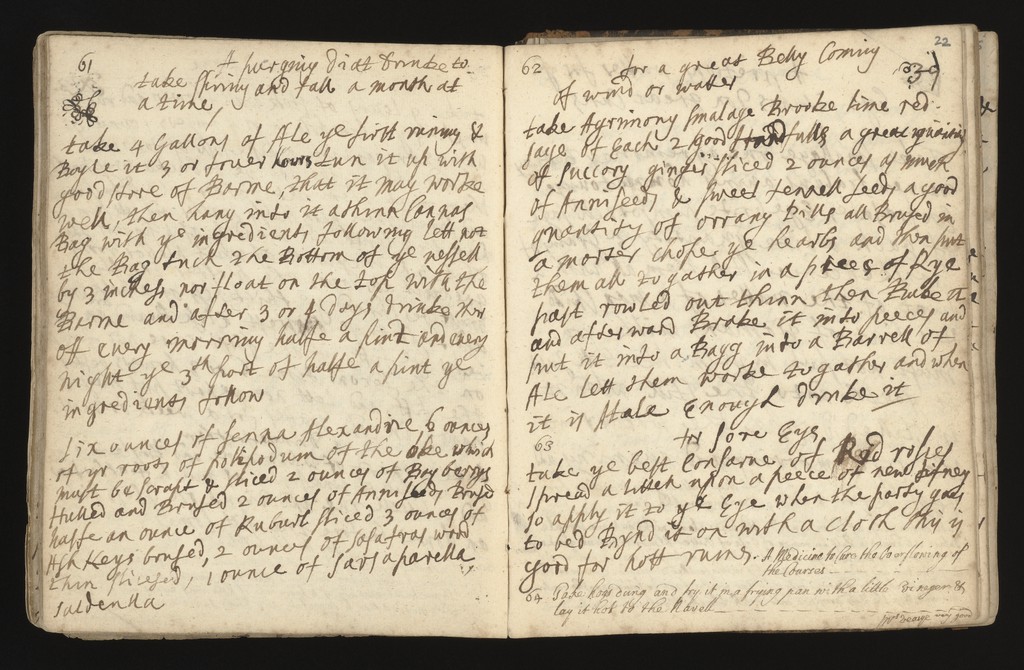 61
A purging diat drinke to
take spring and fall a month at
a time
take 4 Gallons of Ale ye first runing &
Boyle it 3 or fouer howrs tun it up with
good store of Barme, that it may worke
well, then hang into it a thinn Canvas
Bag with ye ingredients following lett not
the Bag tuch the Bottom of ye vessell
by 3 inches nor float on the top with the
Barme and after 3 or 4 days drinke ther
off every morning halfe a pint and every
night ye 3th part of halfe a pint ye
ingredients follow
Six ounces of senna Alexandrie 6 ounces
of ye roots of polipodum of the oke which
must be scrapt & sliced 2 ounces of Bay berrys
Hulled and Brused 2 ounces of Anniseeds Brused
halfe an ounce of Rubarb sliced 3 ounces of
Ash Keys brused, 2 ounces of sasafras wood
thin slicesed, 1 ounce of Sarsaparella
22
62
for a great Belly Coming
of wind or watter
take Agrimony smalage Brooke time red
sage of Each 2 good handfulls a great quantity
of succory ginger sliced 2 ounces as much
of Anniseeds & sweet fennell seeds a good
quantity of orrang pills all Brused in
a morter chope ye hearbs and then put
them all to gather in a peece of Rye
past rowled out thinn then Bake it
and afterward Brake it into peeces and
put it into a Bagg into a Barrell of
Ale lett them worke to gather and when
it is stale Enough drinke it
63
for sore Eys
take ye best Consarve of Red roses
spread a little upon a peece of new
so apply it to ye Eye when the party goes
to bed Bynd it on with a cloth this is
good for hott rumes.
A Medicine to Cure the Overflowing of
the Courses
64 Take hogs dung and fry it in a frying pan with a little Viniger &
lay it hot to the Navell
Mrs George very good